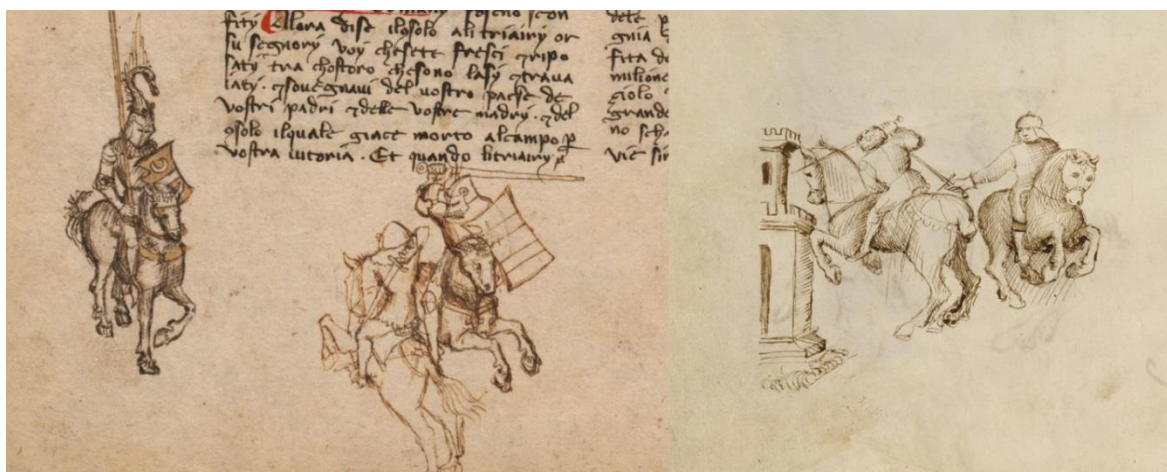 fity Ellora dise ilosolo ali triairy or
su segnory voy chesete fresci ⁊ ripo
saty tra chostoro chesono lasy ⁊ trava
laty. ⁊ sovegnaui del vostro paese de
vostri padri ⁊ delle vostre madry. ⁊ del
osolo ilquale giace morto alcampo ꝑ
vostra uitoria. Et quando litriairy
dele
gnia
fita
milione
ciolo
grande
no